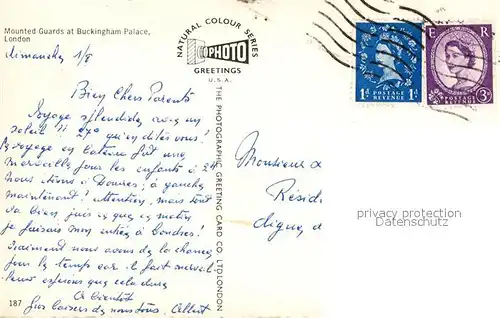 Mounted Guards at Buckingham Palace,
London
dimanche 1/8
Bien Chers Parents
Voyage splendide avec un
soleil !! 27° qu'en dites vous !
Le voyage en bateau fut une
merveille pour les enfants à 2h
nous étions à Douvres ; à gauche
maintenant ! attention, mais tout
va bien, puis
je faisais mon entrée à Londres !
Vraiment nous avons de la chance
pour le temps car il fait merveil-
leux espérons que cela dure
A bientôt
Gros baisers de nous tous. Albert
187
NATURAL COLOUR SERIES
PHOTO
GREETINGS
U.S.A.
THE PHOTOGRAPHIC GREETING CARD CO. LTD LONDON
1D POSTAGE REVENUE 1D
E R
POSTAGE REVENUE 3D
Monsieur
Résid
digue, d
privacy protection
Datenschutz